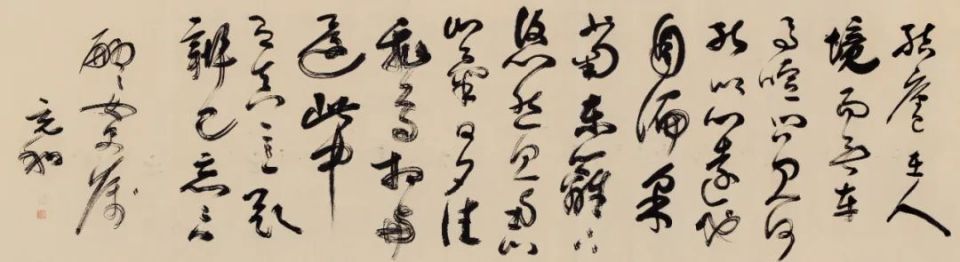 結廬在人
境而無車
馬喧問君何
能爾心遠地
自偏采
菊東籬下
悠然見南山
山氣日夕佳
飛鳥相與
還此中
有真意欲
辨已忘言
女史屬
充和